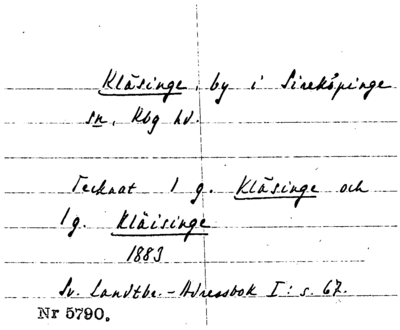 Kläsinge, by i Sireköpinge
sn, Rbg hd.
Tecknat 1 g. Kläsinge och
1 g. Kläisinge
1883
Sv. Landtbr.-Adressbok I: s. 67.
Nr 5790.